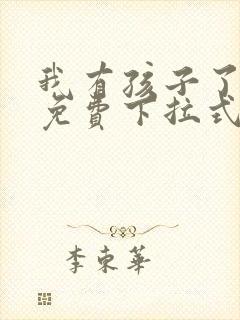 我有孩子了
免费下拉式
李东华